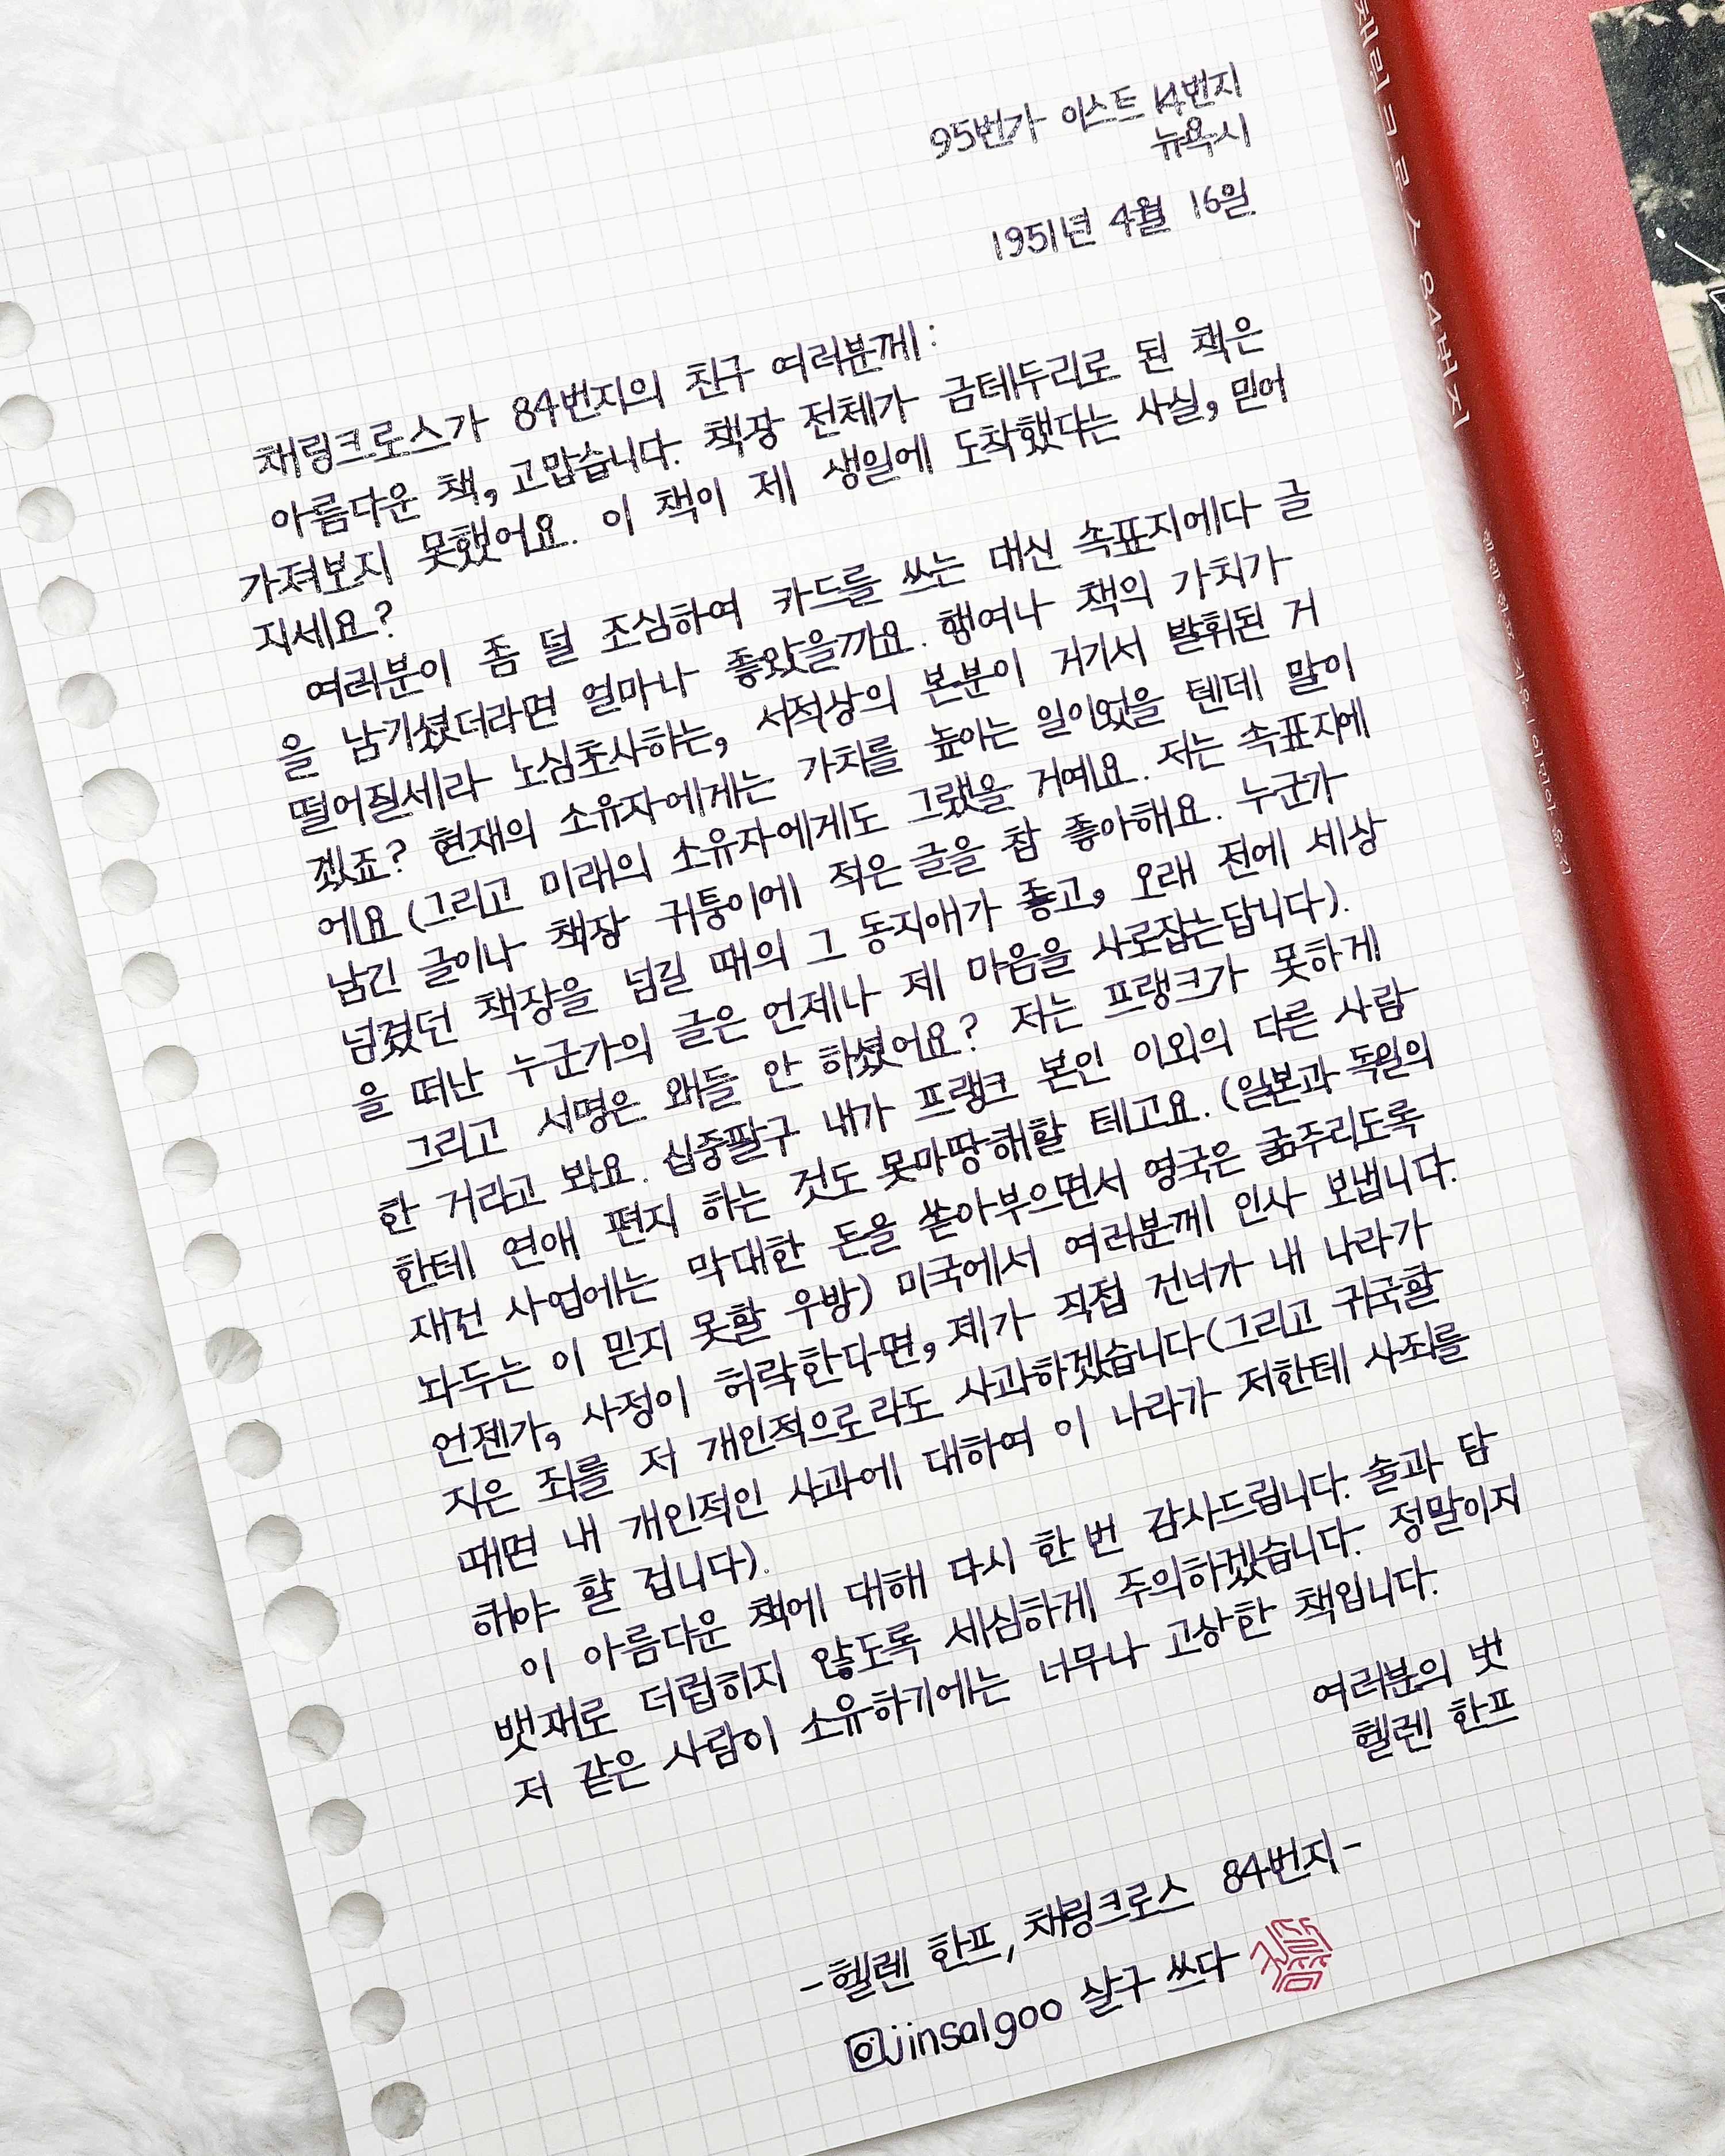 95번가 이스트 14번지
뉴욕시
1951년 4월 16일
채링크로스가 84번지의 친구 여러분께:
아름다운 책, 고맙습니다. 책장 전체가 금테두리로 된 책은
가져보지 못했어요. 이 책이 제 생일에 도착했다는 사실, 믿어
지세요?
여러분이 좀 덜 조심하여 카드를 쓰는 대신 속표지에다 글
을 남기셨더라면 얼마나 좋았을까요. 행여나 책의 가치가
떨어질세라 노심초사하는, 서적상의 본분이 거기서 발휘된 거
겠죠? 현재의 소유자에게는 가치를 높이는 일이었을 텐데 말이
에요(그리고 미래의 소유자에게도 그랬을 거예요. 저는 속표지에
남긴 글이나 책장 귀퉁이에 적은 글을 참 좋아해요. 누군가
넘겼던 책장을 넘길 때의 그 동지애가 좋고, 오래 전에 세상
을 떠난 누군가의 글은 언제나 제 마음을 사로잡는답니다).
그리고 서명은 왜들 안 하셨어요? 저는 프랭크가 못하게
한 거라고 봐요. 십중팔구 내가 프랭크 본인 이외의 다른 사람
한테 연애 편지 하는 것도 못마땅해할 테고요. (일본과 독일의
재건 사업에는 막대한 돈을 쏟아부으면서 영국은 굶주리도록
놔두는 이 믿지 못할 우방) 미국에서 여러분께 인사 보냅니다.
언젠가, 사정이 허락한다면, 제가 직접 건너가 내 나라가
지은 죄를 저 개인적으로라도 사과하겠습니다(그리고 귀국할
때면 내 개인적인 사과에 대하여 이 나라가 저한테 사죄를
해야 할 겁니다).
이 아름다운 책에 대해 다시 한 번 감사드립니다. 술과 담
뱃재로 더럽히지 않도록 세심하게 주의하겠습니다. 정말이지
저 같은 사람이 소유하기에는 너무나 고상한 책입니다.
여러분의 벗
헬렌 한프
-헬렌 한프, 채링크로스 84번지-
@jinsalgoo 살구 쓰다
채링크로스 84번지